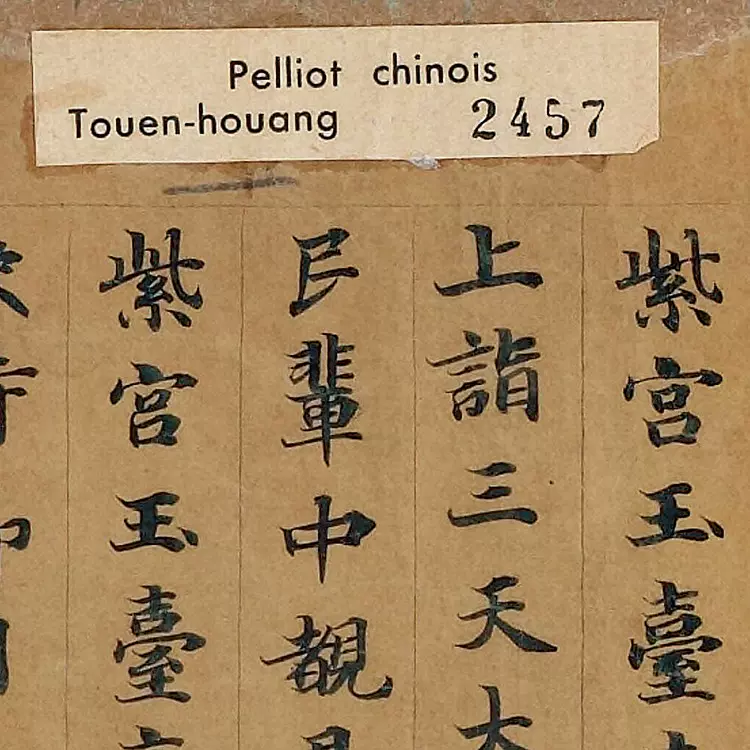 Pelliot chinois
Touen-houang 2457
紫宮玉臺
上詣三天
民輩中覩
紫宮玉臺